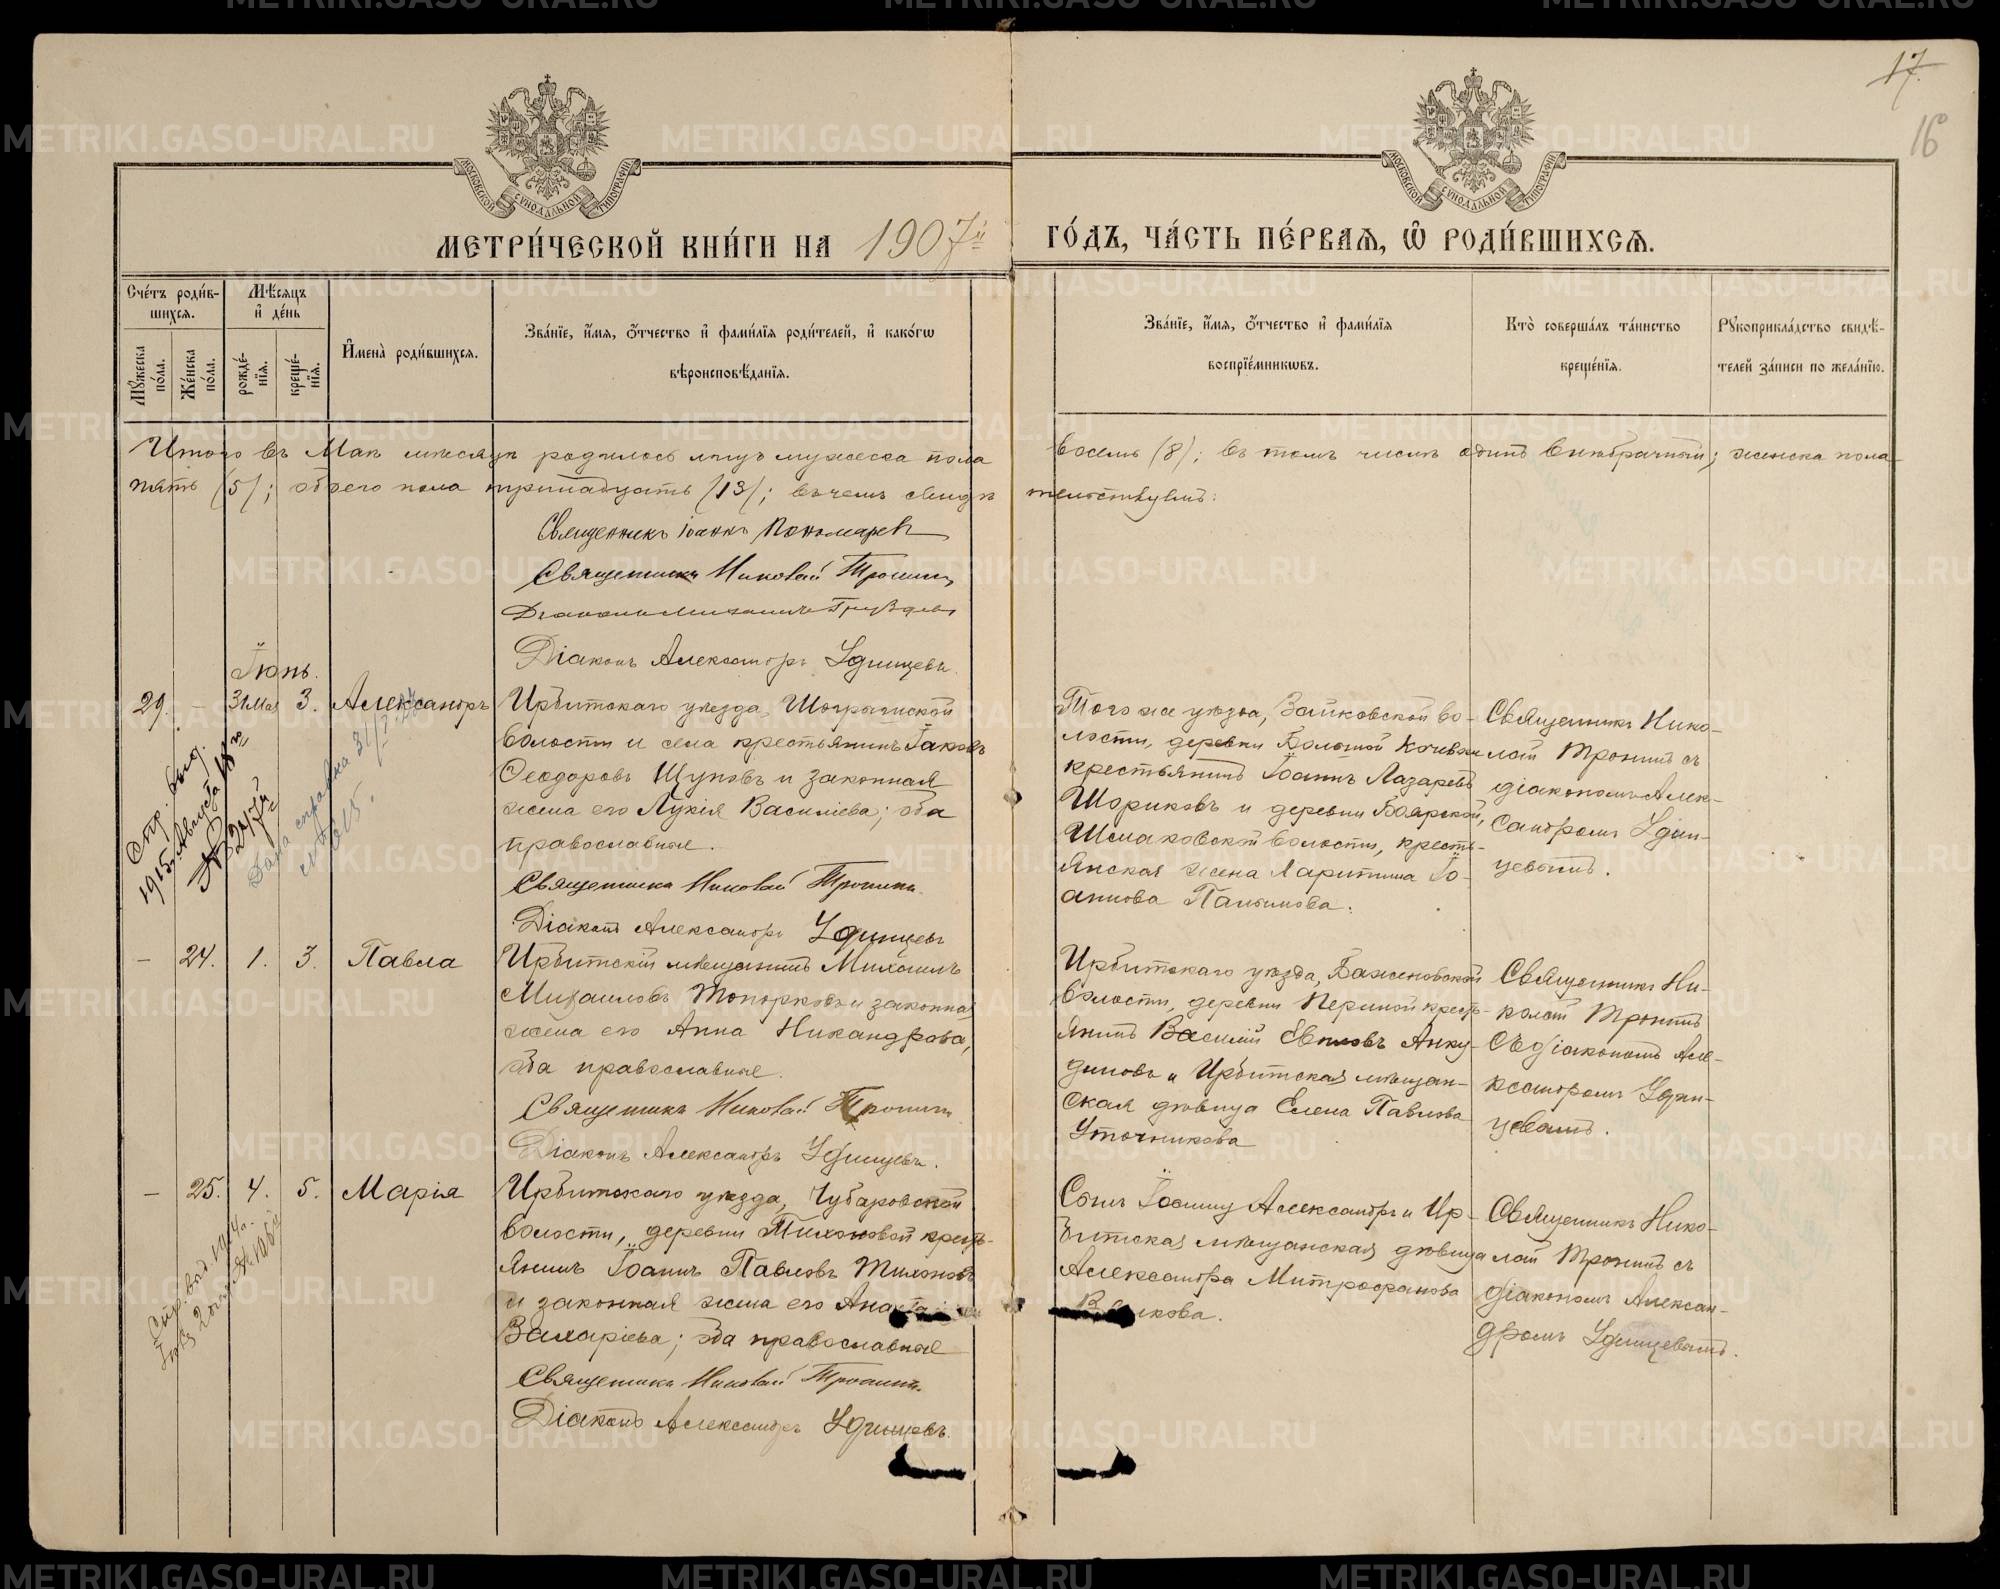 17.
16
МОСКОВСКОЙ СѴНОДАЛЬНОЙ ТИПОГРАФІИ
МОСКОВСКОЙ СѴНОДАЛЬНОЙ ТИПОГРАФІИ
МЕТРИ́ЧЕСКОЙ КНИ́ГИ НА 1907й ГО́ДЪ, ЧА́СТЬ ПЕ́РВАѦ, Ѡ҆ РОДИ́ВШИХСѦ.
Сче́тъ роди́в-
шихсѧ.
Мѣ́сѧцъ
и҆ де́нь
Мꙋ́жеска
по́ла.
Же́нска
по́ла.
рожде́-
нїѧ.
креще́-
нїѧ.
И҆мена̀ роди́вшихсѧ.
Зва́нїе, и҆́мѧ, ѻ҆́тчество и҆ фами́лїѧ роди́телей, и҆ како́гѡ
вѣроисповѣ́данїѧ.
Зва́нїе, и҆́мѧ, ѻ҆́тчество и҆ фами́лїѧ
воспрїе́мникѡвъ.
Кто̀ соверша́лъ та́инство
креще́нїѧ.
Рꙋкоприкла́дство свидѣ́-
телей за́писи по жела́нїю.
Итого въ Маѣ мѣсяцѣ родилось лицъ мужеска пола восемь (8); въ томъ числѣ одинъ внѣбрачный; женска пола
пять (5); обоего пола тринадцать (13); въ чемъ свидѣтельствуемъ:
Священникъ Іоаннъ Пономаревъ
Священникъ Николай Тронинъ
Діаконъ Михаилъ Груздевъ
Діаконъ Александръ Удинцевъ.
Іюнь.
29. - 31 Мая 3. Александръ
Ирбитскаго уѣзда, Шогрышской
волости и села крестьянинъ Іаковъ
Ѳеодоровъ Щуповъ и законная
жена его Лукія Василіева; оба
православные.
Священникъ Николай Тронинъ.
Діаконъ Александръ Удинцевъ
Того же уѣзда, Зайковской во-
лости, деревни Большой Кочевки
крестьянинъ Іоаннъ Лазаревъ
Шориковъ и деревни Боярской,
Шмаковской волости, кресть-
янская жена Харитина Іо-
аннова Пальянова.
Священникъ Нико-
лай Тронинъ съ
діакономъ Алек-
сандромъ Удин-
цевымъ.
Стр. выд.
1915. Августа 18
№ 20/74
Дана справка 31/
- 24. 1. 3. Павла
Ирбитскій мѣщанинъ Михаилъ
Михаиловъ Топорковъ и законная
жена его Анна Никандрова,
оба православные.
Священникъ Николай Тронинъ
Діаконъ Александръ Удинцевъ.
Ирбитскаго уѣзда, Баженовской
волости, деревни Перминой кресть-
янинъ Василій Евповъ Анку-
диновъ и Ирбитская мѣщан-
ская дѣвица Елена Павлова
Уточникова
Священникъ Ни-
колай Тронинъ
съ діакономъ Але-
ксандромъ Удин-
цевымъ.
- 25. 4. 5. Марія
Ирбитскаго уѣзда, Чубаровской
волости, деревни Тихоновой кресть-
янинъ Іоаннъ Павловъ Тихоновъ
и законная жена его
Захаріева; оба православные
Священникъ Николай Тронинъ.
Діаконъ Александръ Удинцевъ.
Сынъ Іоанну Александръ и Ир-
битская мѣщанская дѣвица
Александра Митрофанова
Священникъ Нико-
лай Тронинъ съ
діакономъ Алексан-
дромъ Удинцевымъ.
Стр. выд. 1914 г.
METRIKI.GASO-URAL.RU